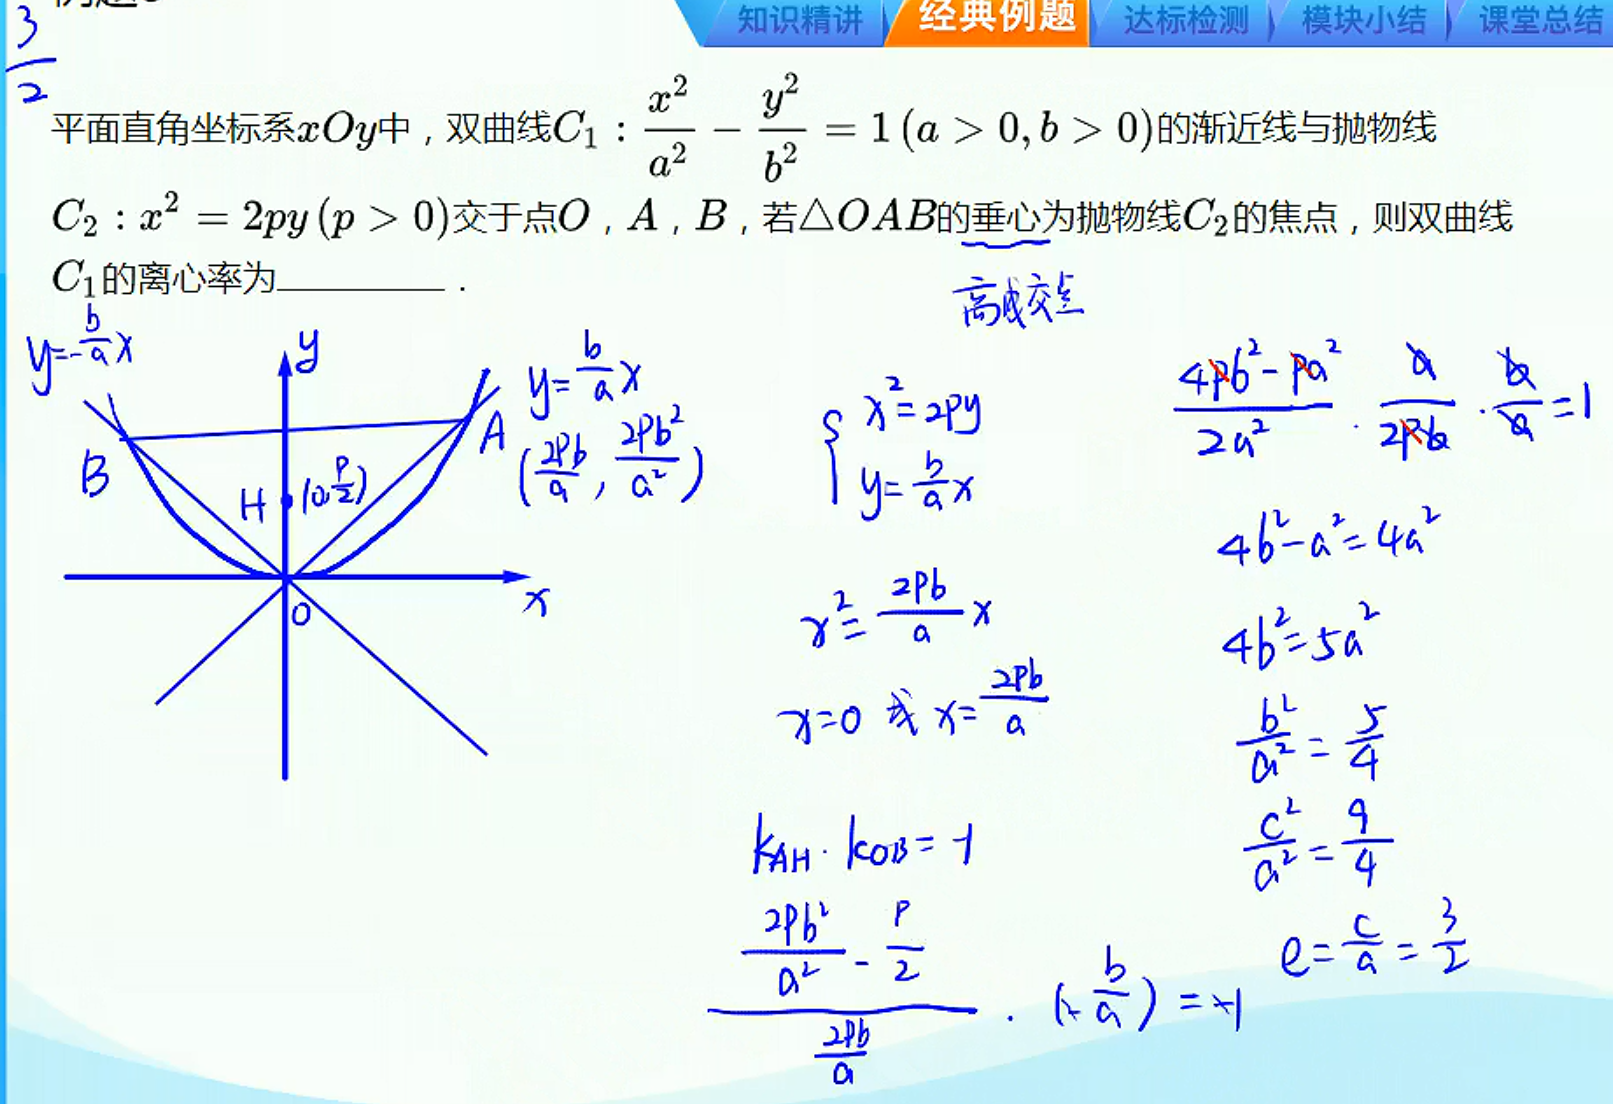 知识精讲 经典例题 达标检测 模块小结 课堂总结
3/2
平面直角坐标系xOy中，双曲线C₁：x²/a² − y²/b² = 1 (a > 0, b > 0)的渐近线与抛物线
C₂：x² = 2py (p > 0)交于点O，A，B，若△OAB的垂心为抛物线C₂的焦点，则双曲线
C₁的离心率为________．
高线交点
y=-b/a x
y
y=b/a x
B
A
(2pb/a, 2pb²/a²)
H (0, p/2)
O
x
{ x²=2py
y=b/a x
x²=2pb/a x
x=0 或 x=2pb/a
k_AH · k_OB = -1
(2pb²/a² - p/2)/(2pb/a) · (-b/a) = -1
(4pb²-pa²)/2a² · a/2pb · b/a =1
4b²-a²=4a²
4b²=5a²
b²/a²=5/4
c²/a²=9/4
e=c/a=3/2